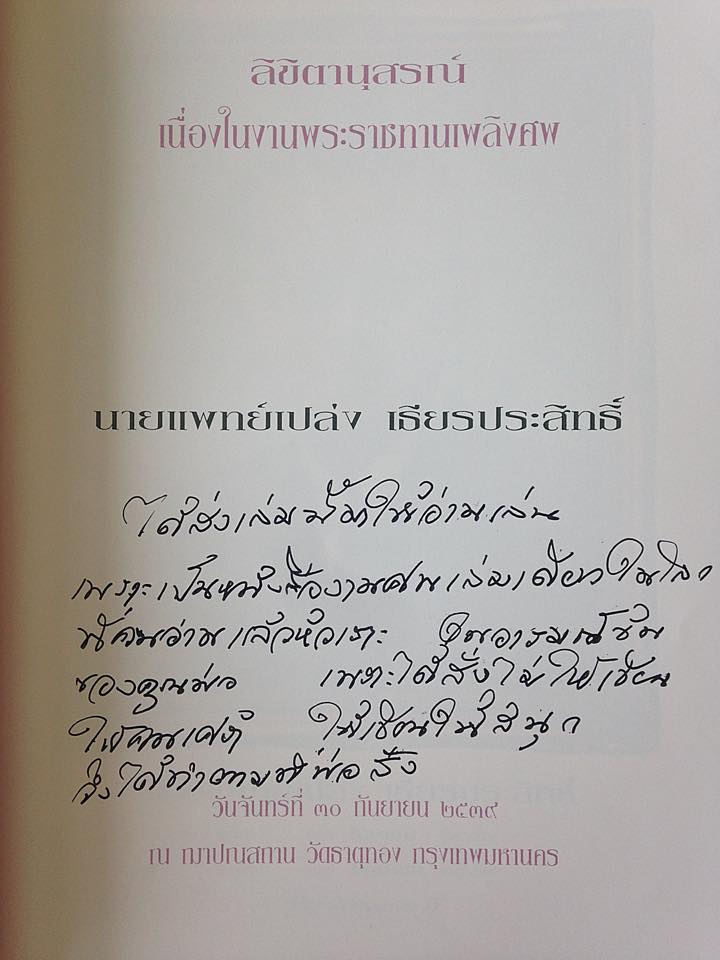 ลิขิตานุสรณ์
เนื่องในงานพระราชทานเพลิงศพ
นายแพทย์เปล่ง เธียรประสิทธิ์
ได้ส่งเล่มนี้มาให้อ่านเล่น
เพราะเป็นหนังสืองานศพเล่มเดียวในโลก
ที่คนอ่านแล้วหัวเราะ ในอารมณ์ขัน
ของคุณพ่อ เพราะได้สั่งไม่ให้เขียน
ให้คนเศร้า ให้เขียนให้สนุก
จึงได้ทำตามที่พ่อสั่ง
วันจันทร์ที่ ๓๐ กันยายน ๒๕๓๙
ณ ฌาปณสถาน วัดธาตุทอง กรุงเทพมหานคร